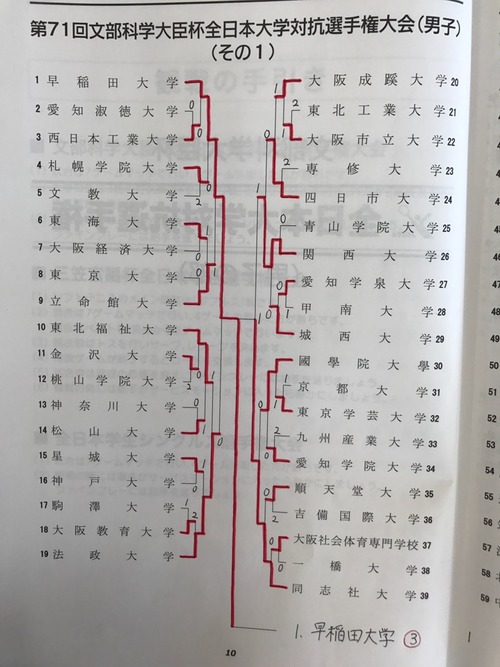 第71回文部科学大臣杯全日本大学対抗選手権大会(男子)
(その1)
1 早稲田大学
2 愛知淑徳大学
3 西日本工業大学
4 札幌学院大学
5 文教大学
6 東海大学
7 大阪経済大学
8 東京大学
9 立命館大学
10 東北福祉大学
11 金沢大学
12 桃山学院大学
13 神奈川大学
14 松山大学
15 星城大学
16 神戸大学
17 駒澤大学
18 大阪教育大学
19 法政大学
大阪成蹊大学 20
東北工業大学 21
大阪市立大学 22
専修大学 23
四日市大学 24
青山学院大学 25
関西大学 26
愛知学泉大学 27
甲南大学 28
城西大学 29
國學院大學 30
京都大学 31
東京学芸大学 32
九州産業大学 33
愛知学院大学 34
順天堂大学 35
吉備国際大学 36
大阪社会体育専門学校 37
一橋大学 38
同志社大学 39
1. 早稲田大学 ③
10